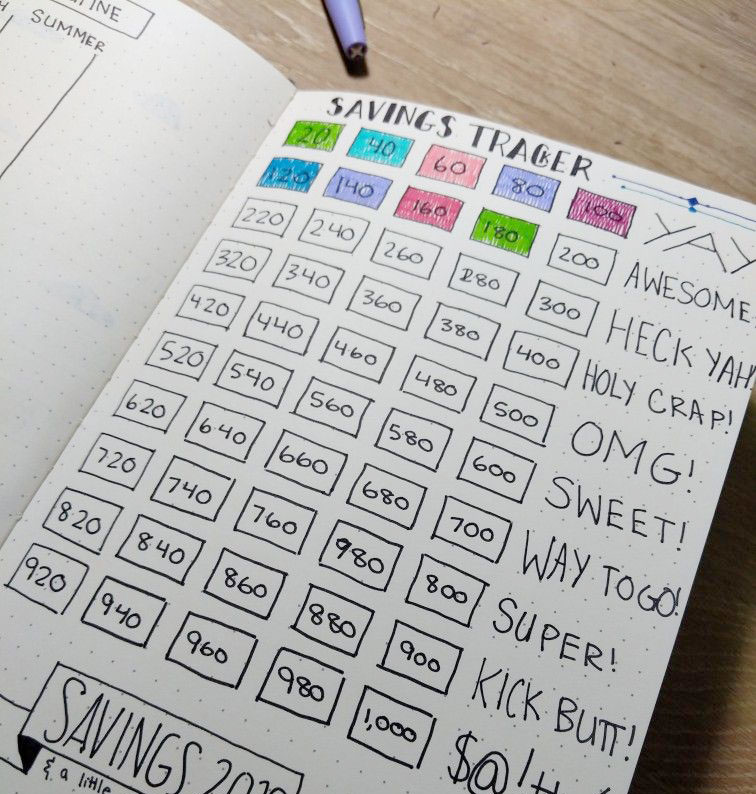 SUMMER
SAVINGS TRACKER
20 40 60 80 100 YAY
120 140 160 180 200 AWESOME
220 240 260 280 300 HECK YAH!
320 340 360 380 400 HOLY CRAP!
420 440 460 480 500 OMG!
520 540 560 580 600 SWEET!
620 640 660 680 700 WAY TO GO!
720 740 760 980 800 SUPER!
820 840 860 880 900 KICK BUTT!
920 940 960 980 1,000 $@!#
SAVINGS
& a little